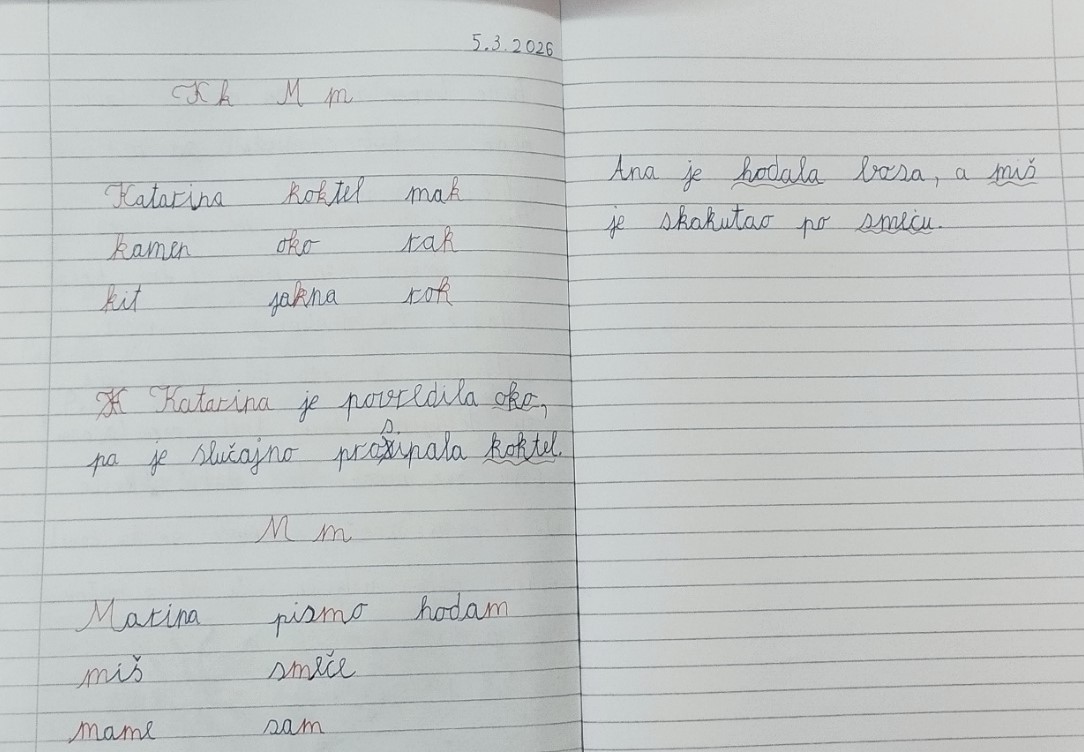 5.3.2026
K k M m
Katarina koktel mak
kamen oko rak
kit jakna rok
Katarina je povredila oko,
pa je slučajno prosipala koktel.
M m
Marina pismo hodam
miš smeće
mame sam
Ana je hodala bosa, a miš
je skakutao po smeću.